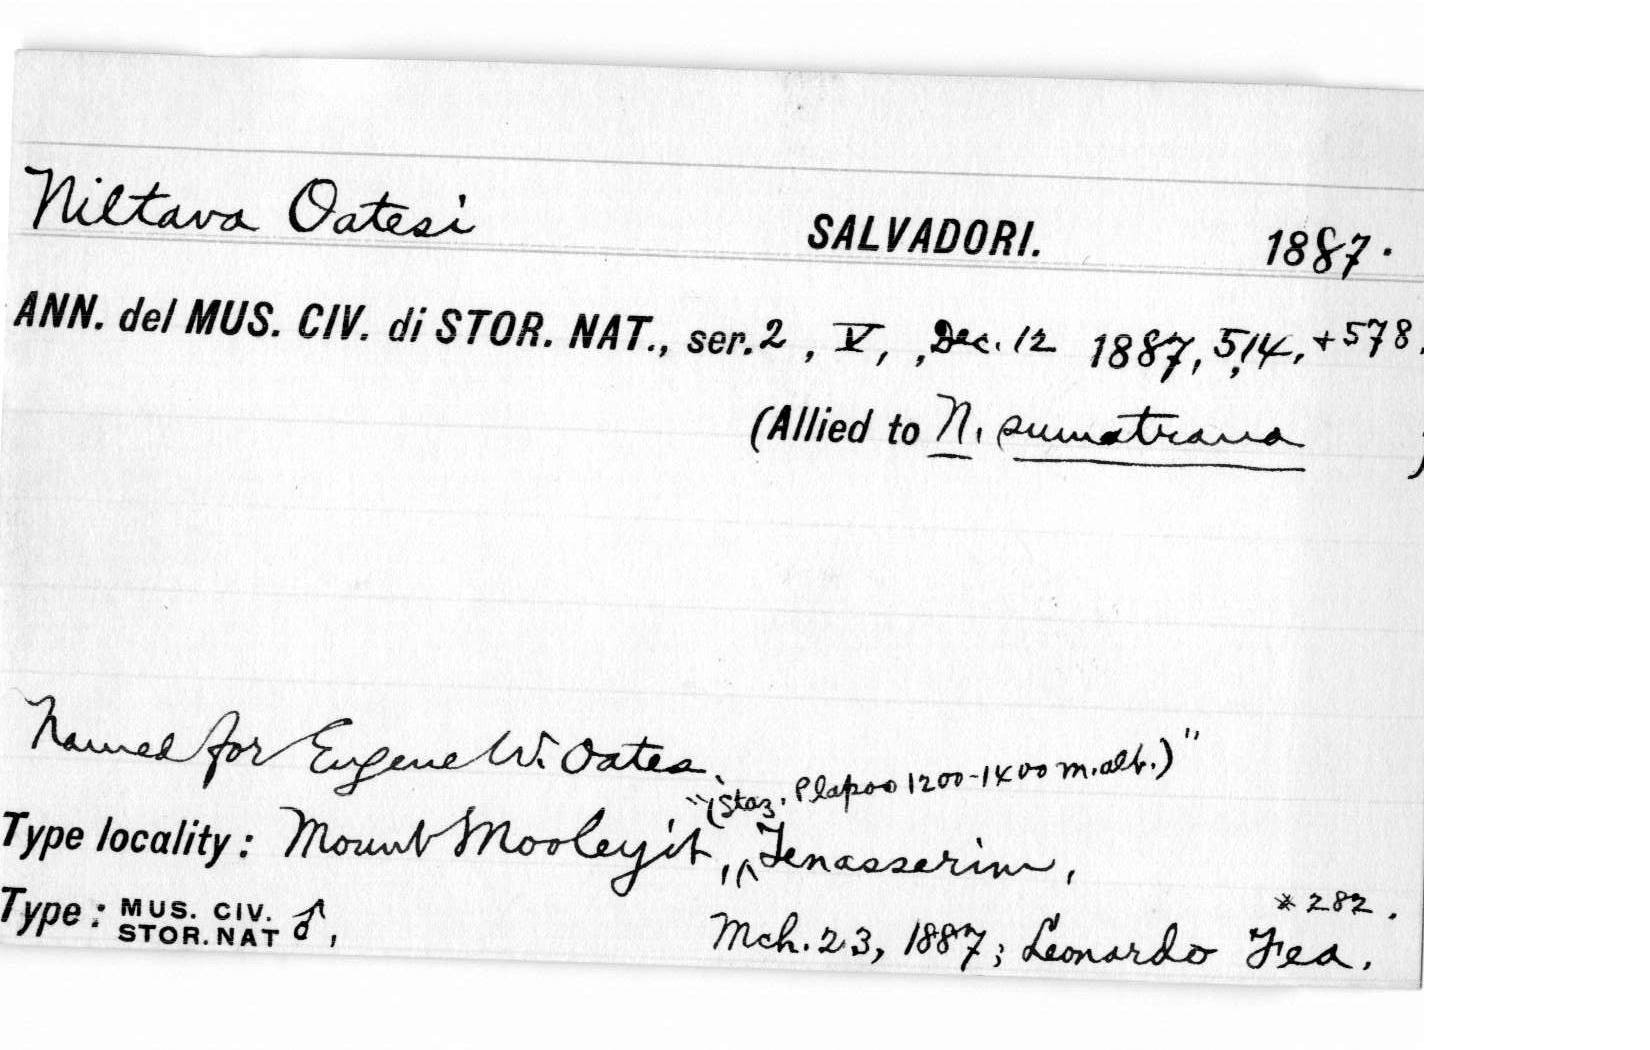 Niltava Oatesi SALVADORI. 1887.
ANN. del MUS. CIV. di STOR. NAT., ser. 2, V, , Dec. 12 1887, 514, + 578.
(Allied to N. sumatrana )
Named for Eugene W. Oates.
"(Staz. Plapoo 1200-1400 m. alt.)"
Type locality: Mount Mooleyit, Tenasserim,
Type: MUS. CIV. STOR. NAT ♂, * 282.
Mch. 23, 1887; Leonardo Fea.